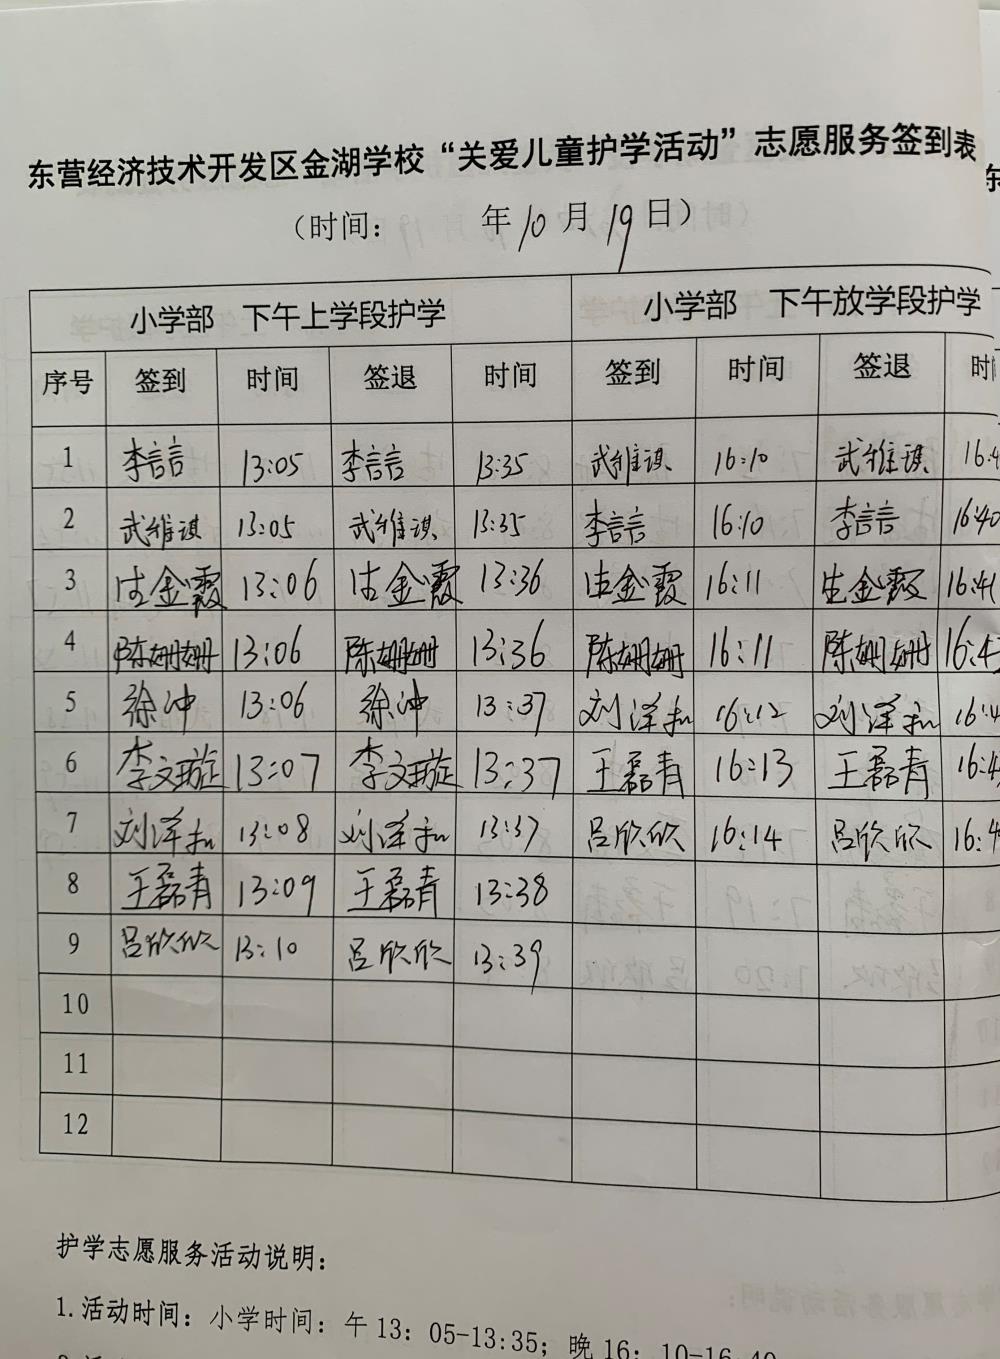 东营经济技术开发区金湖学校“关爱儿童护学活动”志愿服务签到表
（时间： 年10月19日）
小学部 下午上学段护学 小学部 下午放学段护学
序号 签到 时间 签退 时间 签到 时间 签退 时间
1 李言言 13:05 李言言 13:35 武维祺 16:10 武维祺 16:4
2 武维祺 13:05 武维祺 13:35 李言言 16:10 李言言 16:40
3 金霞 13:06 金霞 13:36 金霞 16:11 金霞 16:41
4 陈姗姗 13:06 陈姗姗 13:36 陈姗姗 16:11 陈姗姗 16:4
5 徐冲 13:06 徐冲 13:37 刘泽和 16:12 刘泽和 16:4
6 李文璇 13:07 李文璇 13:37 王磊青 16:13 王磊青 16:4
7 刘泽和 13:08 刘泽和 13:37 吕欣欣 16:14 吕欣欣 16:4
8 王磊青 13:09 王磊青 13:38
9 吕欣欣 13:10 吕欣欣 13:39
10
11
12
护学志愿服务活动说明：
1.活动时间：小学时间：午13：05-13:35；晚16：10-16:40